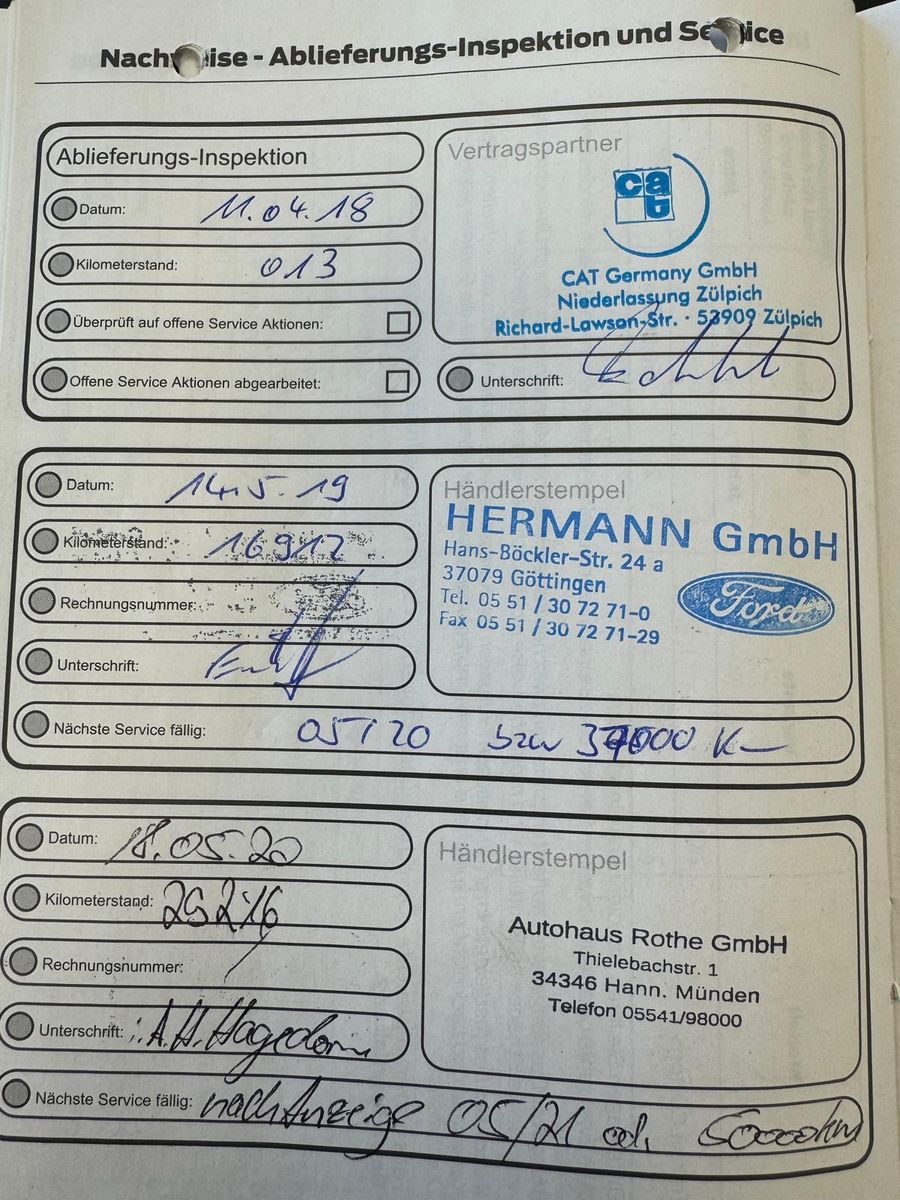 Nachweise - Ablieferungs-Inspektion und Service
Ablieferungs-Inspektion
Datum: 11.04.18
Kilometerstand: 013
Überprüft auf offene Service Aktionen:
Offene Service Aktionen abgearbeitet:
Vertragspartner
cat
CAT Germany GmbH
Niederlassung Zülpich
Richard-Lawson-Str. · 53909 Zülpich
Unterschrift:
Datum: 14.5.19
Kilometerstand: 16912
Rechnungsnummer:
Unterschrift:
Händlerstempel
HERMANN GmbH
Hans-Böckler-Str. 24 a
37079 Göttingen
Tel. 05 51 / 30 72 71-0
Fax 05 51 / 30 72 71-29
Ford
Nächste Service fällig: 05/20 bzw
Datum: 18.05.20
Kilometerstand:
Rechnungsnummer:
Unterschrift: A.H. Hagedorn
Händlerstempel
Autohaus Rothe GmbH
Thielebachstr. 1
34346 Hann. Münden
Telefon 05541/98000
Nächste Service fällig: nach Anzeige 05/21 od.